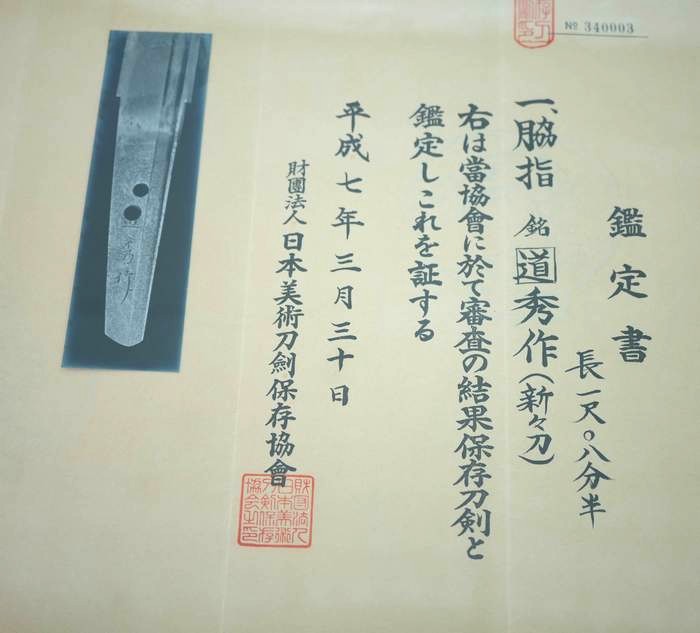 № 340003
鑑定書
一、脇指 銘 道秀作(新々刀)
長一尺〇八分半
右は當協會に於て審査の結果保存刀劍と
鑑定しこれを証する
平成七年三月三十日
財團法人日本美術刀劍保存協會
財団法人
日本美術
刀剣保存
協会之印